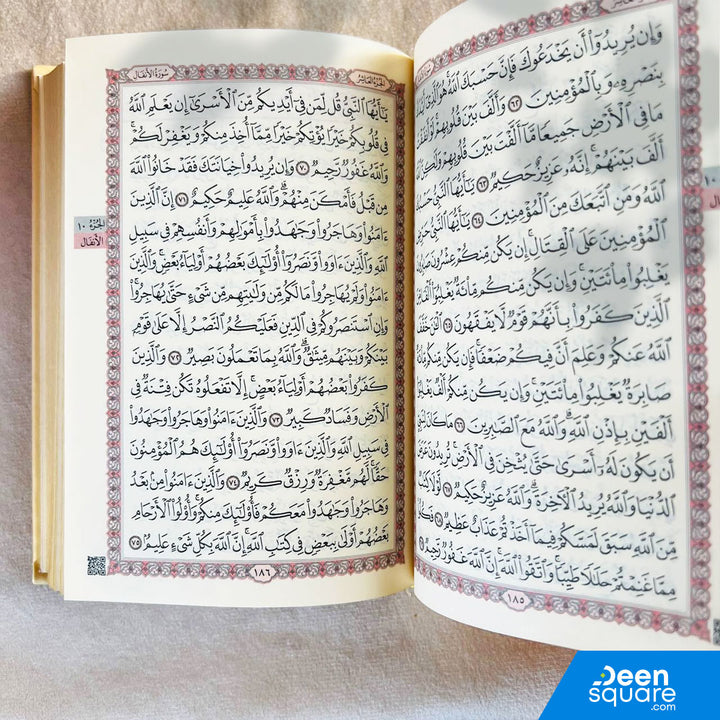 وَإِن يُرِيدُوٓاْ أَن يَخۡدَعُوكَ فَإِنَّ حَسۡبَكَ ٱللَّهُۚ هُوَ ٱلَّذِيٓ
بِنَصۡرِهِۦ وَبِٱلۡمُؤۡمِنِينَ ٦٢ وَأَلَّفَ بَيۡنَ قُلُوبِهِمۡۚ لَوۡ أَنفَقۡتَ
مَا فِي ٱلۡأَرۡضِ جَمِيعٗا مَّآ أَلَّفۡتَ بَيۡنَ قُلُوبِهِمۡ وَلَٰكِنَّ ٱللَّهَ
أَلَّفَ بَيۡنَهُمۡۚ إِنَّهُۥ عَزِيزٌ حَكِيمٞ ٦٣ يَٰٓأَيُّهَا ٱلنَّبِيُّ حَسۡبُكَ
ٱللَّهُ وَمَنِ ٱتَّبَعَكَ مِنَ ٱلۡمُؤۡمِنِينَ ٦٤ يَٰٓأَيُّهَا ٱلنَّبِيُّ حَرِّضِ
ٱلۡمُؤۡمِنِينَ عَلَى ٱلۡقِتَالِۚ إِن يَكُن مِّنكُمۡ عِشۡرُونَ صَٰبِرُونَ
يَغۡلِبُواْ مِاْئَتَيۡنِۚ وَإِن يَكُن مِّنكُم مِّاْئَةٞ يَغۡلِبُوٓاْ أَلۡفٗا مِّنَ
ٱلَّذِينَ كَفَرُواْ بِأَنَّهُمۡ قَوۡمٞ لَّا يَفۡقَهُونَ ٦٥ ٱلۡـَٰٔنَ خَفَّفَ
ٱللَّهُ عَنكُمۡ وَعَلِمَ أَنَّ فِيكُمۡ ضَعۡفٗاۚ فَإِن يَكُن مِّنكُم مِّاْئَةٞ
صَابِرَةٞ يَغۡلِبُواْ مِاْئَتَيۡنِۚ وَإِن يَكُن مِّنكُمۡ أَلۡفٞ يَغۡلِبُوٓاْ
أَلۡفَيۡنِ بِإِذۡنِ ٱللَّهِۗ وَٱللَّهُ مَعَ ٱلصَّٰبِرِينَ ٦٦ مَا كَانَ لِنَبِيٍّ
أَن يَكُونَ لَهُۥٓ أَسۡرَىٰ حَتَّىٰ يُثۡخِنَ فِي ٱلۡأَرۡضِۚ تُرِيدُونَ عَرَضَ
ٱلدُّنۡيَا وَٱللَّهُ يُرِيدُ ٱلۡأٓخِرَةَۗ وَٱللَّهُ عَزِيزٌ حَكِيمٞ ٦٧ لَّوۡلَا كِتَٰبٞ
مِّنَ ٱللَّهِ سَبَقَ لَمَسَّكُمۡ فِيمَآ أَخَذۡتُمۡ عَذَابٌ عَظِيمٞ ٦٨ فَكُلُواْ
مِمَّا غَنِمۡتُمۡ حَلَٰلٗا طَيِّبٗاۚ وَٱتَّقُواْ ٱللَّهَۚ إِنَّ ٱللَّهَ غَفُورٞ رَّحِيمٞ ٦٩
١٨٥
الجزء العاشر سورة الأنفال
يَٰٓأَيُّهَا ٱلنَّبِيُّ قُل لِّمَن فِيٓ أَيۡدِيكُم مِّنَ ٱلۡأَسۡرَىٰٓ إِن يَعۡلَمِ ٱللَّهُ
فِي قُلُوبِكُمۡ خَيۡرٗا يُؤۡتِكُمۡ خَيۡرٗا مِّمَّآ أُخِذَ مِنكُمۡ وَيَغۡفِرۡ لَكُمۡۚ
وَٱللَّهُ غَفُورٞ رَّحِيمٞ ٧٠ وَإِن يُرِيدُواْ خِيَانَتَكَ فَقَدۡ خَانُواْ ٱللَّهَ
مِن قَبۡلُ فَأَمۡكَنَ مِنۡهُمۡۗ وَٱللَّهُ عَلِيمٌ حَكِيمٌ ٧١ إِنَّ ٱلَّذِينَ
ءَامَنُواْ وَهَاجَرُواْ وَجَٰهَدُواْ بِأَمۡوَٰلِهِمۡ وَأَنفُسِهِمۡ فِي سَبِيلِ
ٱللَّهِ وَٱلَّذِينَ ءَاوَواْ وَّنَصَرُوٓاْ أُوْلَٰٓئِكَ بَعۡضُهُمۡ أَوۡلِيَآءُ بَعۡضٖۚ وَٱلَّذِينَ
ءَامَنُواْ وَلَمۡ يُهَاجِرُواْ مَا لَكُم مِّن وَلَٰيَتِهِم مِّن شَيۡءٍ حَتَّىٰ يُهَاجِرُواْۚ
وَإِنِ ٱسۡتَنصَرُوكُمۡ فِي ٱلدِّينِ فَعَلَيۡكُمُ ٱلنَّصۡرُ إِلَّا عَلَىٰ قَوۡمِۭ
بَيۡنَكُمۡ وَبَيۡنَهُم مِّيثَٰقٞۗ وَٱللَّهُ بِمَا تَعۡمَلُونَ بَصِيرٞ ٧٢ وَٱلَّذِينَ
كَفَرُواْ بَعۡضُهُمۡ أَوۡلِيَآءُ بَعۡضٍۚ إِلَّا تَفۡعَلُوهُ تَكُن فِتۡنَةٞ فِي
ٱلۡأَرۡضِ وَفَسَادٞ كَبِيرٞ ٧٣ وَٱلَّذِينَ ءَامَنُواْ وَهَاجَرُواْ وَجَٰهَدُواْ
فِي سَبِيلِ ٱللَّهِ وَٱلَّذِينَ ءَاوَواْ وَّنَصَرُوٓاْ أُوْلَٰٓئِكَ هُمُ ٱلۡمُؤۡمِنُونَ
حَقّٗاۚ لَّهُم مَّغۡفِرَةٞ وَرِزۡقٞ كَرِيمٞ ٧٤ وَٱلَّذِينَ ءَامَنُواْ مِنۢ بَعۡدُ
وَهَاجَرُواْ وَجَٰهَدُواْ مَعَكُمۡ فَأُوْلَٰٓئِكَ مِنكُمۡۚ وَأُوْلُواْ ٱلۡأَرۡحَامِ
بَعۡضُهُمۡ أَوۡلَىٰ بِبَعۡضٖ فِي كِتَٰبِ ٱللَّهِۚ إِنَّ ٱللَّهَ بِكُلِّ شَيۡءٍ عَلِيمُۢ ٧٥
١٨٦
الجزء ١٠
الأنفال
Deen
square
.com